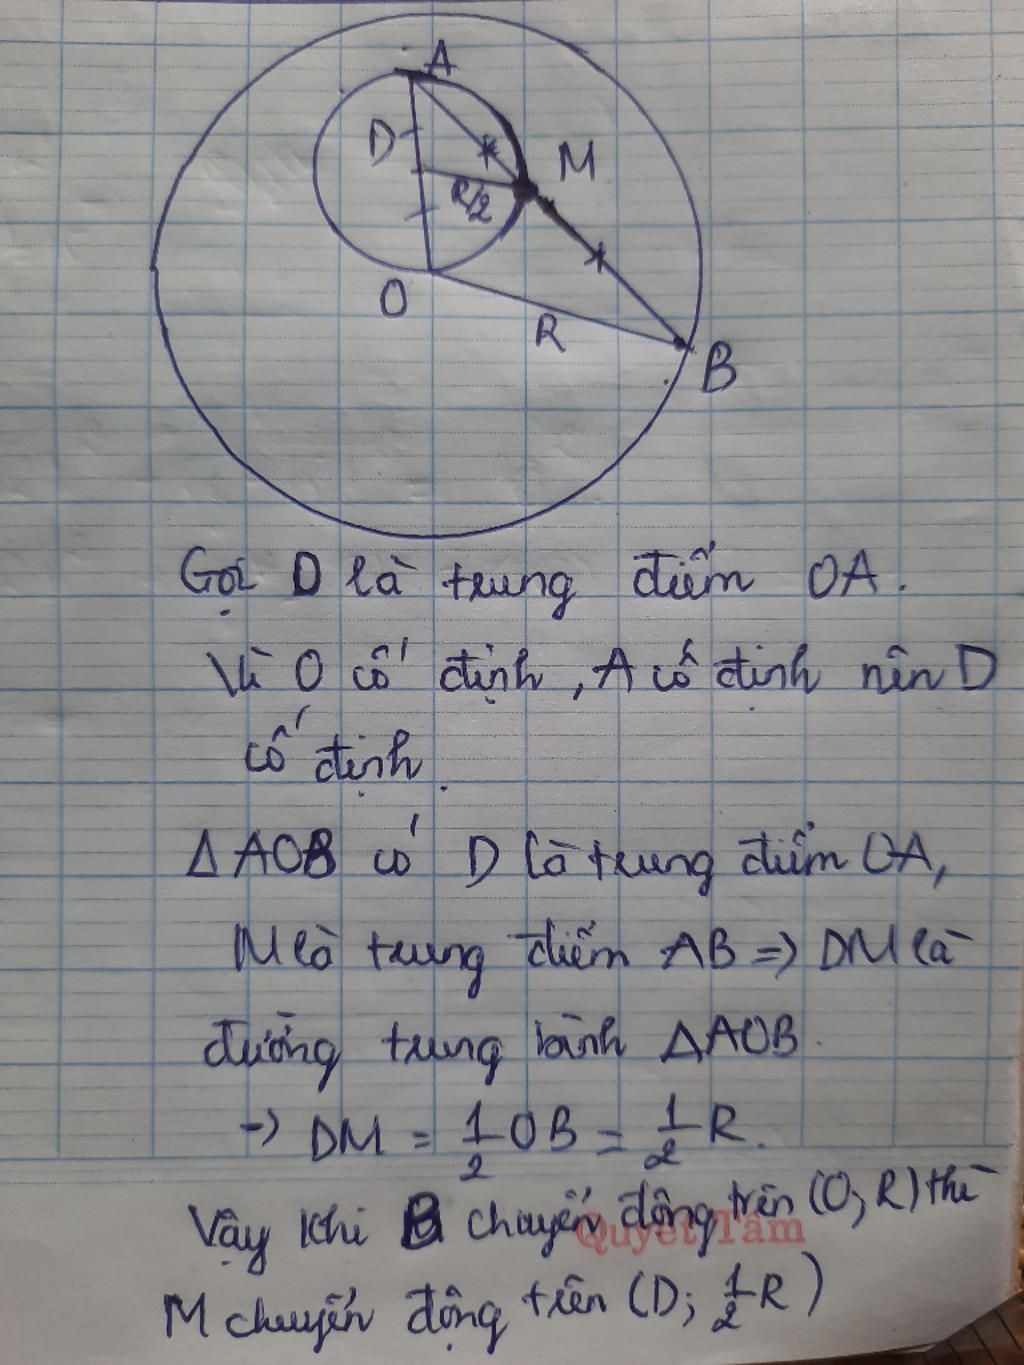 A
D
M
R/2
O
R
B
Gọi D là trung điểm OA.
Vì O cố định, A cố định nên D
cố định.
Δ AOB có D là trung điểm OA,
M là trung điểm AB => DM là
đường trung bình ΔAOB.
-> DM = 1/2 OB = 1/2 R.
Vậy khi B chuyển động trên (O; R) thì
Quyết Tâm
M chuyển động trên (D; 1/2 R)